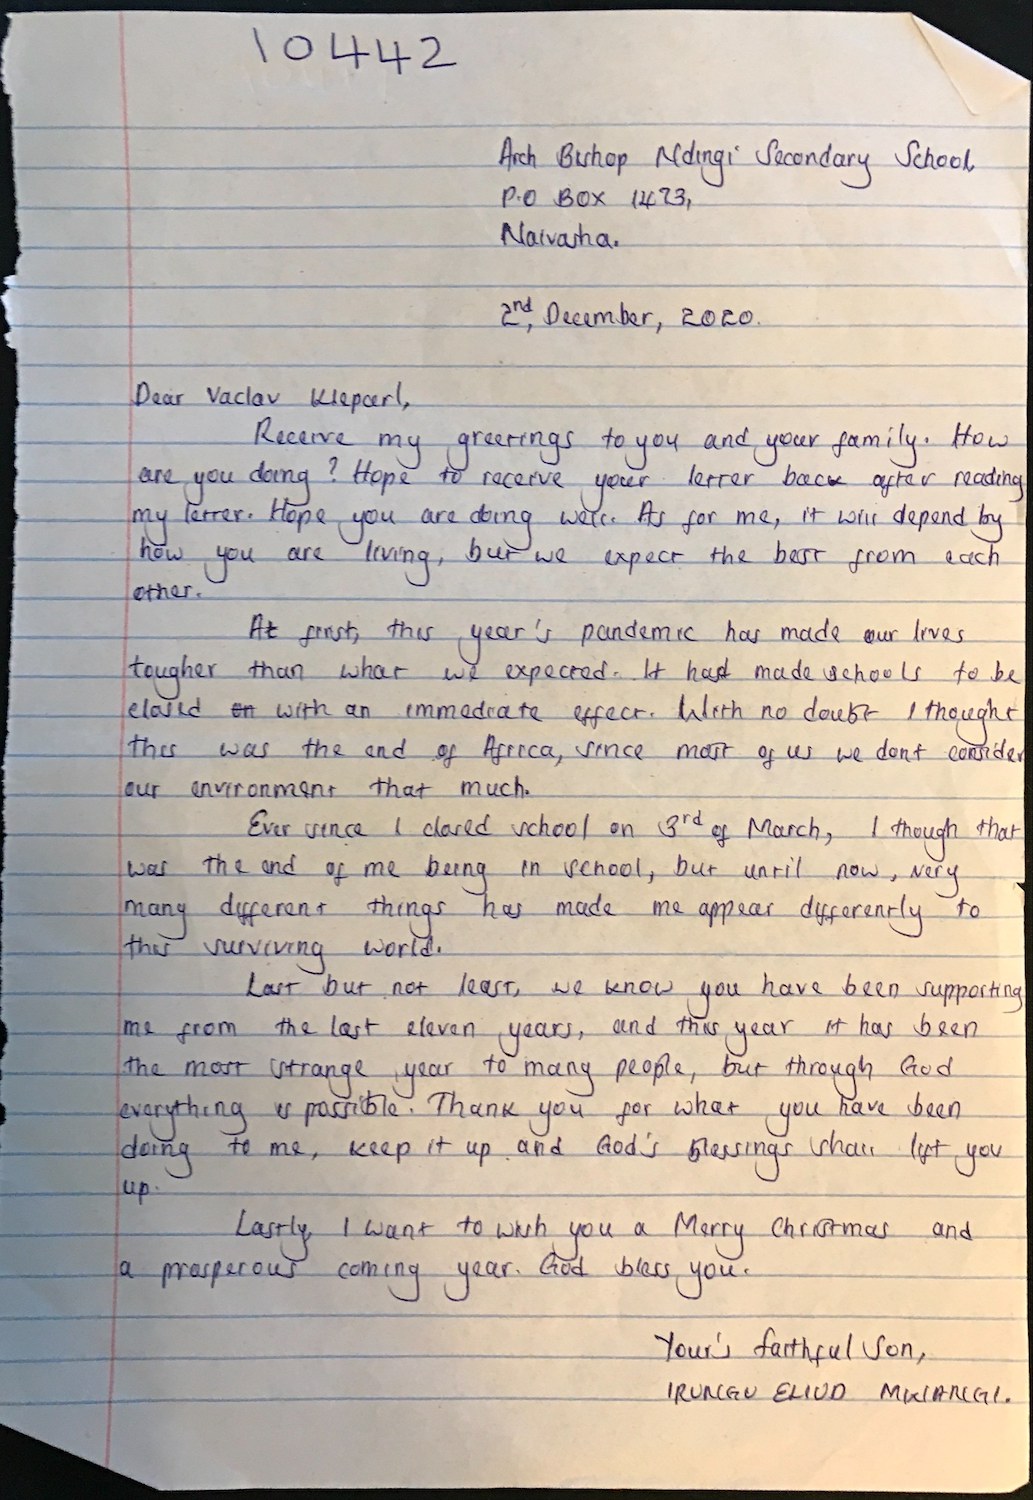 10442
Arch Bishop Ndingi Secondary School,
P.O BOX 1473,
Naivasha.
2nd, December, 2020.
Dear Vaclav Kleparl,
Receive my greetings to you and your family. How
are you doing? Hope to receive your letter back after reading
my letter. Hope you are doing well. As for me, it will depend by
how you are living, but we expect the best from each
other.
At first, this year's pandemic has made our lives
tougher than what we expected. It had made schools to be
closed with an immediate effect. With no doubt I thought
this was the end of Africa, since most of us we dont consider
our environment that much.
Ever since I closed school on 3rd of March, I though that
was the end of me being in school, but until now, very
many different things has made me appear differently to
this surviving world.
Last but not least, we know you have been supporting
me from the last eleven years, and this year it has been
the most strange year to many people, but through God
everything is possible. Thank you for what you have been
doing to me, keep it up and God's blessings shall lift you
up.
Lastly, I want to wish you a Merry Christmas and
a prosperous coming year. God bless you.
Your's faithful son,
IRUNGU ELIUD MWANGI.